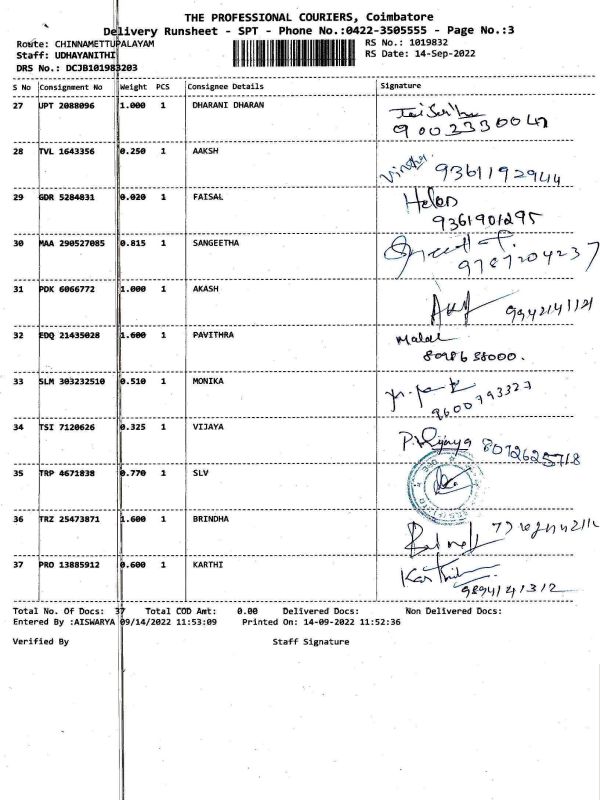 THE PROFESSIONAL COURIERS, Coimbatore
Delivery Runsheet - SPT - Phone No.:0422-3505555 - Page No.:3
Route: CHINNAMETTUPALAYAM RS No.: 1019832
Staff: UDHAYANITHI RS Date: 14-Sep-2022
DRS No.: DCJB101983203
S No Consignment No Weight PCS Consignee Details Signature
27 UPT 2088096 1.000 1 DHARANI DHARAN
9002330047
28 TVL 1643356 0.250 1 AAKSH
9361192944
29 GDR 5284831 0.020 1 FAISAL Helen
9361901295
30 MAA 290527085 0.815 1 SANGEETHA
9787204237
31 PDK 6066772 1.000 1 AKASH
9942141121
32 EDQ 21435028 1.600 1 PAVITHRA Malar
8098638000.
33 SLM 303232510 0.510 1 MONIKA
9600793327
34 TSI 7120626 0.325 1 VIJAYA P. Vijaya 8072625718
35 TRP 4671838 0.770 1 SLV
36 TRZ 25473871 1.600 1 BRINDHA
37 PRO 13885912 0.600 1 KARTHI Karthi
9894141312
Total No. Of Docs: 37 Total COD Amt: 0.00 Delivered Docs: Non Delivered Docs:
Entered By :AISWARYA 09/14/2022 11:53:09 Printed On: 14-09-2022 11:52:36
Verified By Staff Signature